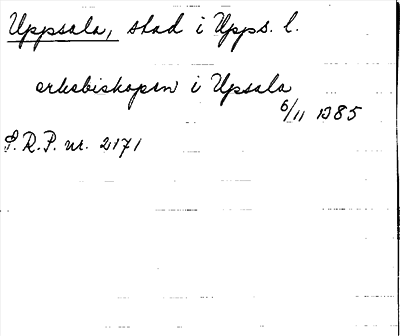 Uppsala, stad i Upps. l.
erkebiskopen i Upsala
6/11 1385
S.R.P. nr. 2171